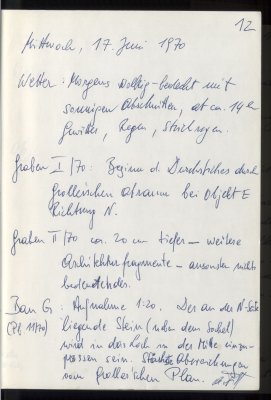 12
Mittwoch, 17. Juni 1970
Wetter: Morgens wolkig-bedeckt mit
sonnigen Abschnitten, ab ca. 14 h
Gewitter, Regen, Strichregen.
Graben I/70: Beginn d. Durchstiches durch
Grollerischen Abraum bei Objekt E
Richtung N.
Graben II/70 ca. 20 cm tiefer - weitere
Architekturfragmente - ansonsten nichts
bedeutendes.
Bau G: Aufnahme 1:20. Der an der N-Seite
(Pl. 11/70) liegende Stein (neben dem Sockel)
wird in das Loch in der Mitte einzu-
passen sein. Starke Abweichungen
vom Grollerischen Plan.